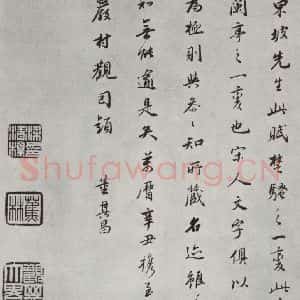 東坡先生此賦楚騷之一變此
蘭亭之一變也宋人文字俱以
為極則與參參知所藏名迹雖
知無能逾是矣萬曆辛丑攜至
巖村觀因題
董其昌
蕉林
Shufawang.CN